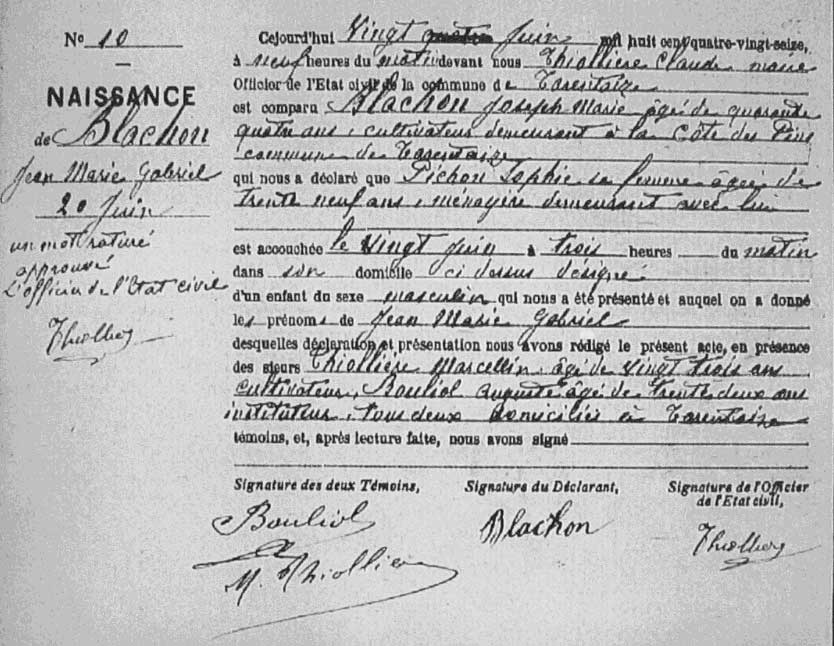 N° 10
NAISSANCE
de Blachon
Jean Marie Gabriel
20 Juin
un mot raturé
approuvé
L'officier de l'Etat civil
Thiollier
Cejourd'hui Vingt quatre Juin mil huit cent quatre-vingt-seize,
à neuf heures du matin devant nous Thiollière Claude maire
Officier de l'Etat civil de la commune de Tarentaize
est comparu Blachon Joseph Marie âgé de quarante
quatre ans, cultivateur demeurant à la Côte des Pins
commune de Tarentaize
qui nous a déclaré que Pichon Sophie sa femme âgée de
trente neuf ans, ménagère demeurant avec lui
est accouchée le vingt Juin à trois heures du matin
dans son domicile ci dessus désigné
d'un enfant du sexe masculin qui nous a été présenté et auquel on a donné
les prénoms de Jean Marie Gabriel
desquelles déclaration et présentation nous avons rédigé le présent acte, en présence
des sieurs Thiollière Marcellin âgé de vingt trois ans
cultivateur, Bouliol Auguste âgé de trente deux ans
instituteur, tous deux domiciliés à Tarentaize
témoins, et, après lecture faite, nous avons signé
Signature des deux Témoins, Signature du Déclarant, Signature de l'Officier
de l'Etat civil,
Bouliol Blachon Thiollier
M. Thiollier